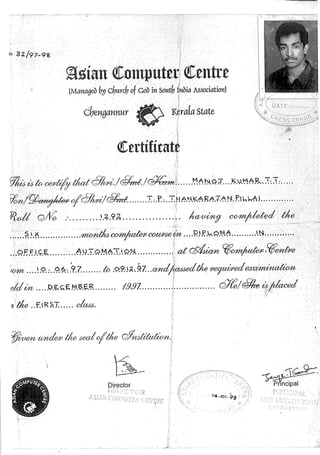 32/97-98
Asian Computer Centre
(Managed by Church of God in South India Association)
Chengannur Kerala State
Certificate
This is to certify that Shri./Smt./Kum. MANOJ KUMAR T.T.
Son/Daughter of Shri/Smt. T.P. THANKARAJAN PILLAI
Roll No : 1292 having completed the
SIX months computer course in DIPLOMA IN
OFFICE AUTOMATION at Asian Computer Centre
om 10.06.97 to 09.12.97 and passed the required examination
eld in DECEMBER 1997 He/She is placed
the FIRST class.
Given under the seal of the Institution.
Director
DIRECTOR
ASIAN COMPUTER CENTRE
ASIAN COMPUTER CENTRE
14-01-98
Principal
PRINCIPAL
DATE
CHENGANNUR